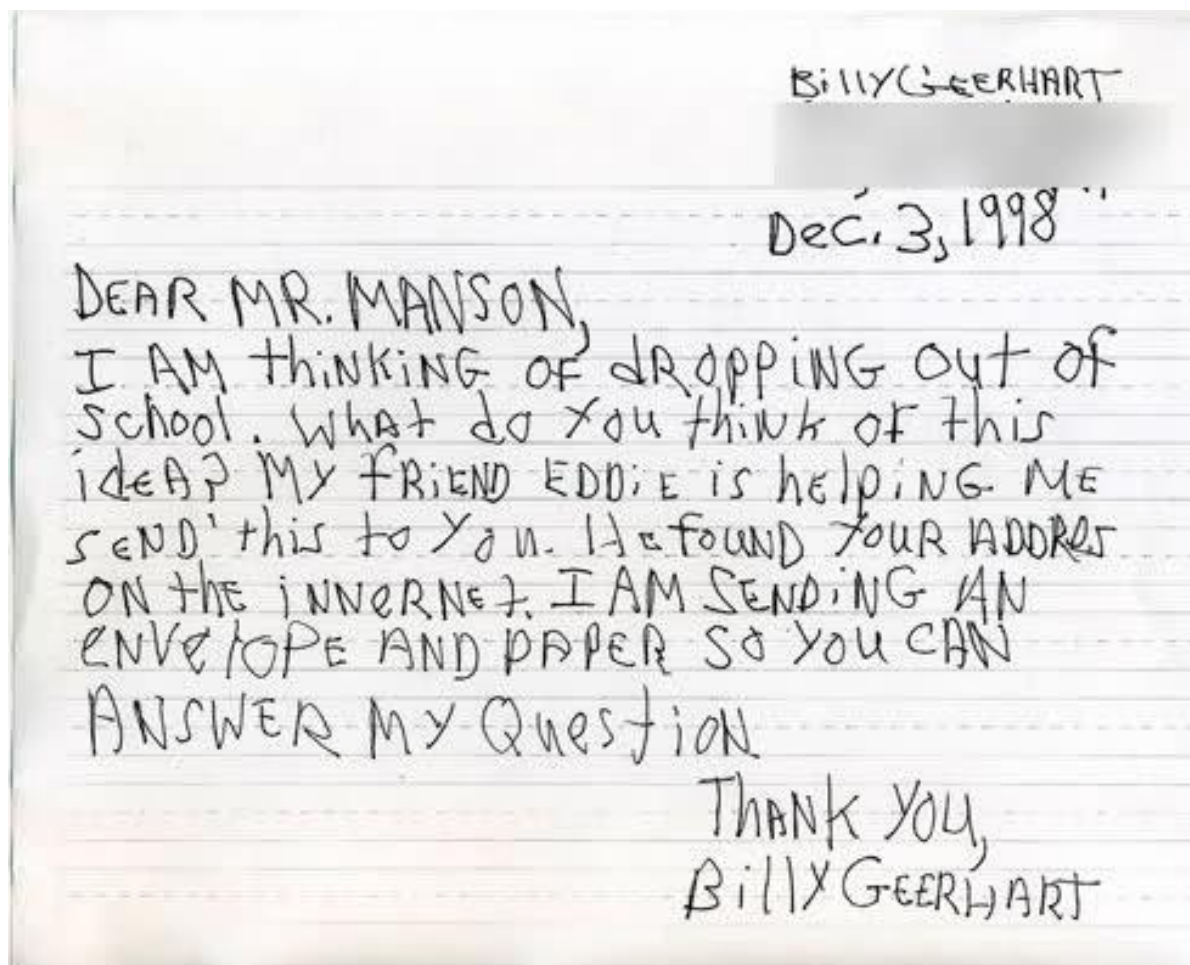 BillY GEERHART
Dec. 3, 1998
DEAR MR. MANSON,
I AM thiNKiNG OF dROppiNG Out OF
school. WhAt do You thiNk of this
ideA? MY fRiEND EDDiE is helpiNG ME
SEND this to You. He foUND YOUR ADDRes
ON thE iNNeRNEt. I AM SENDiNG AN
eNVelOPE AND PAPER SO YOU CAN
ANSWER MY QuestioN
ThANk YOU,
BillY GEERHART